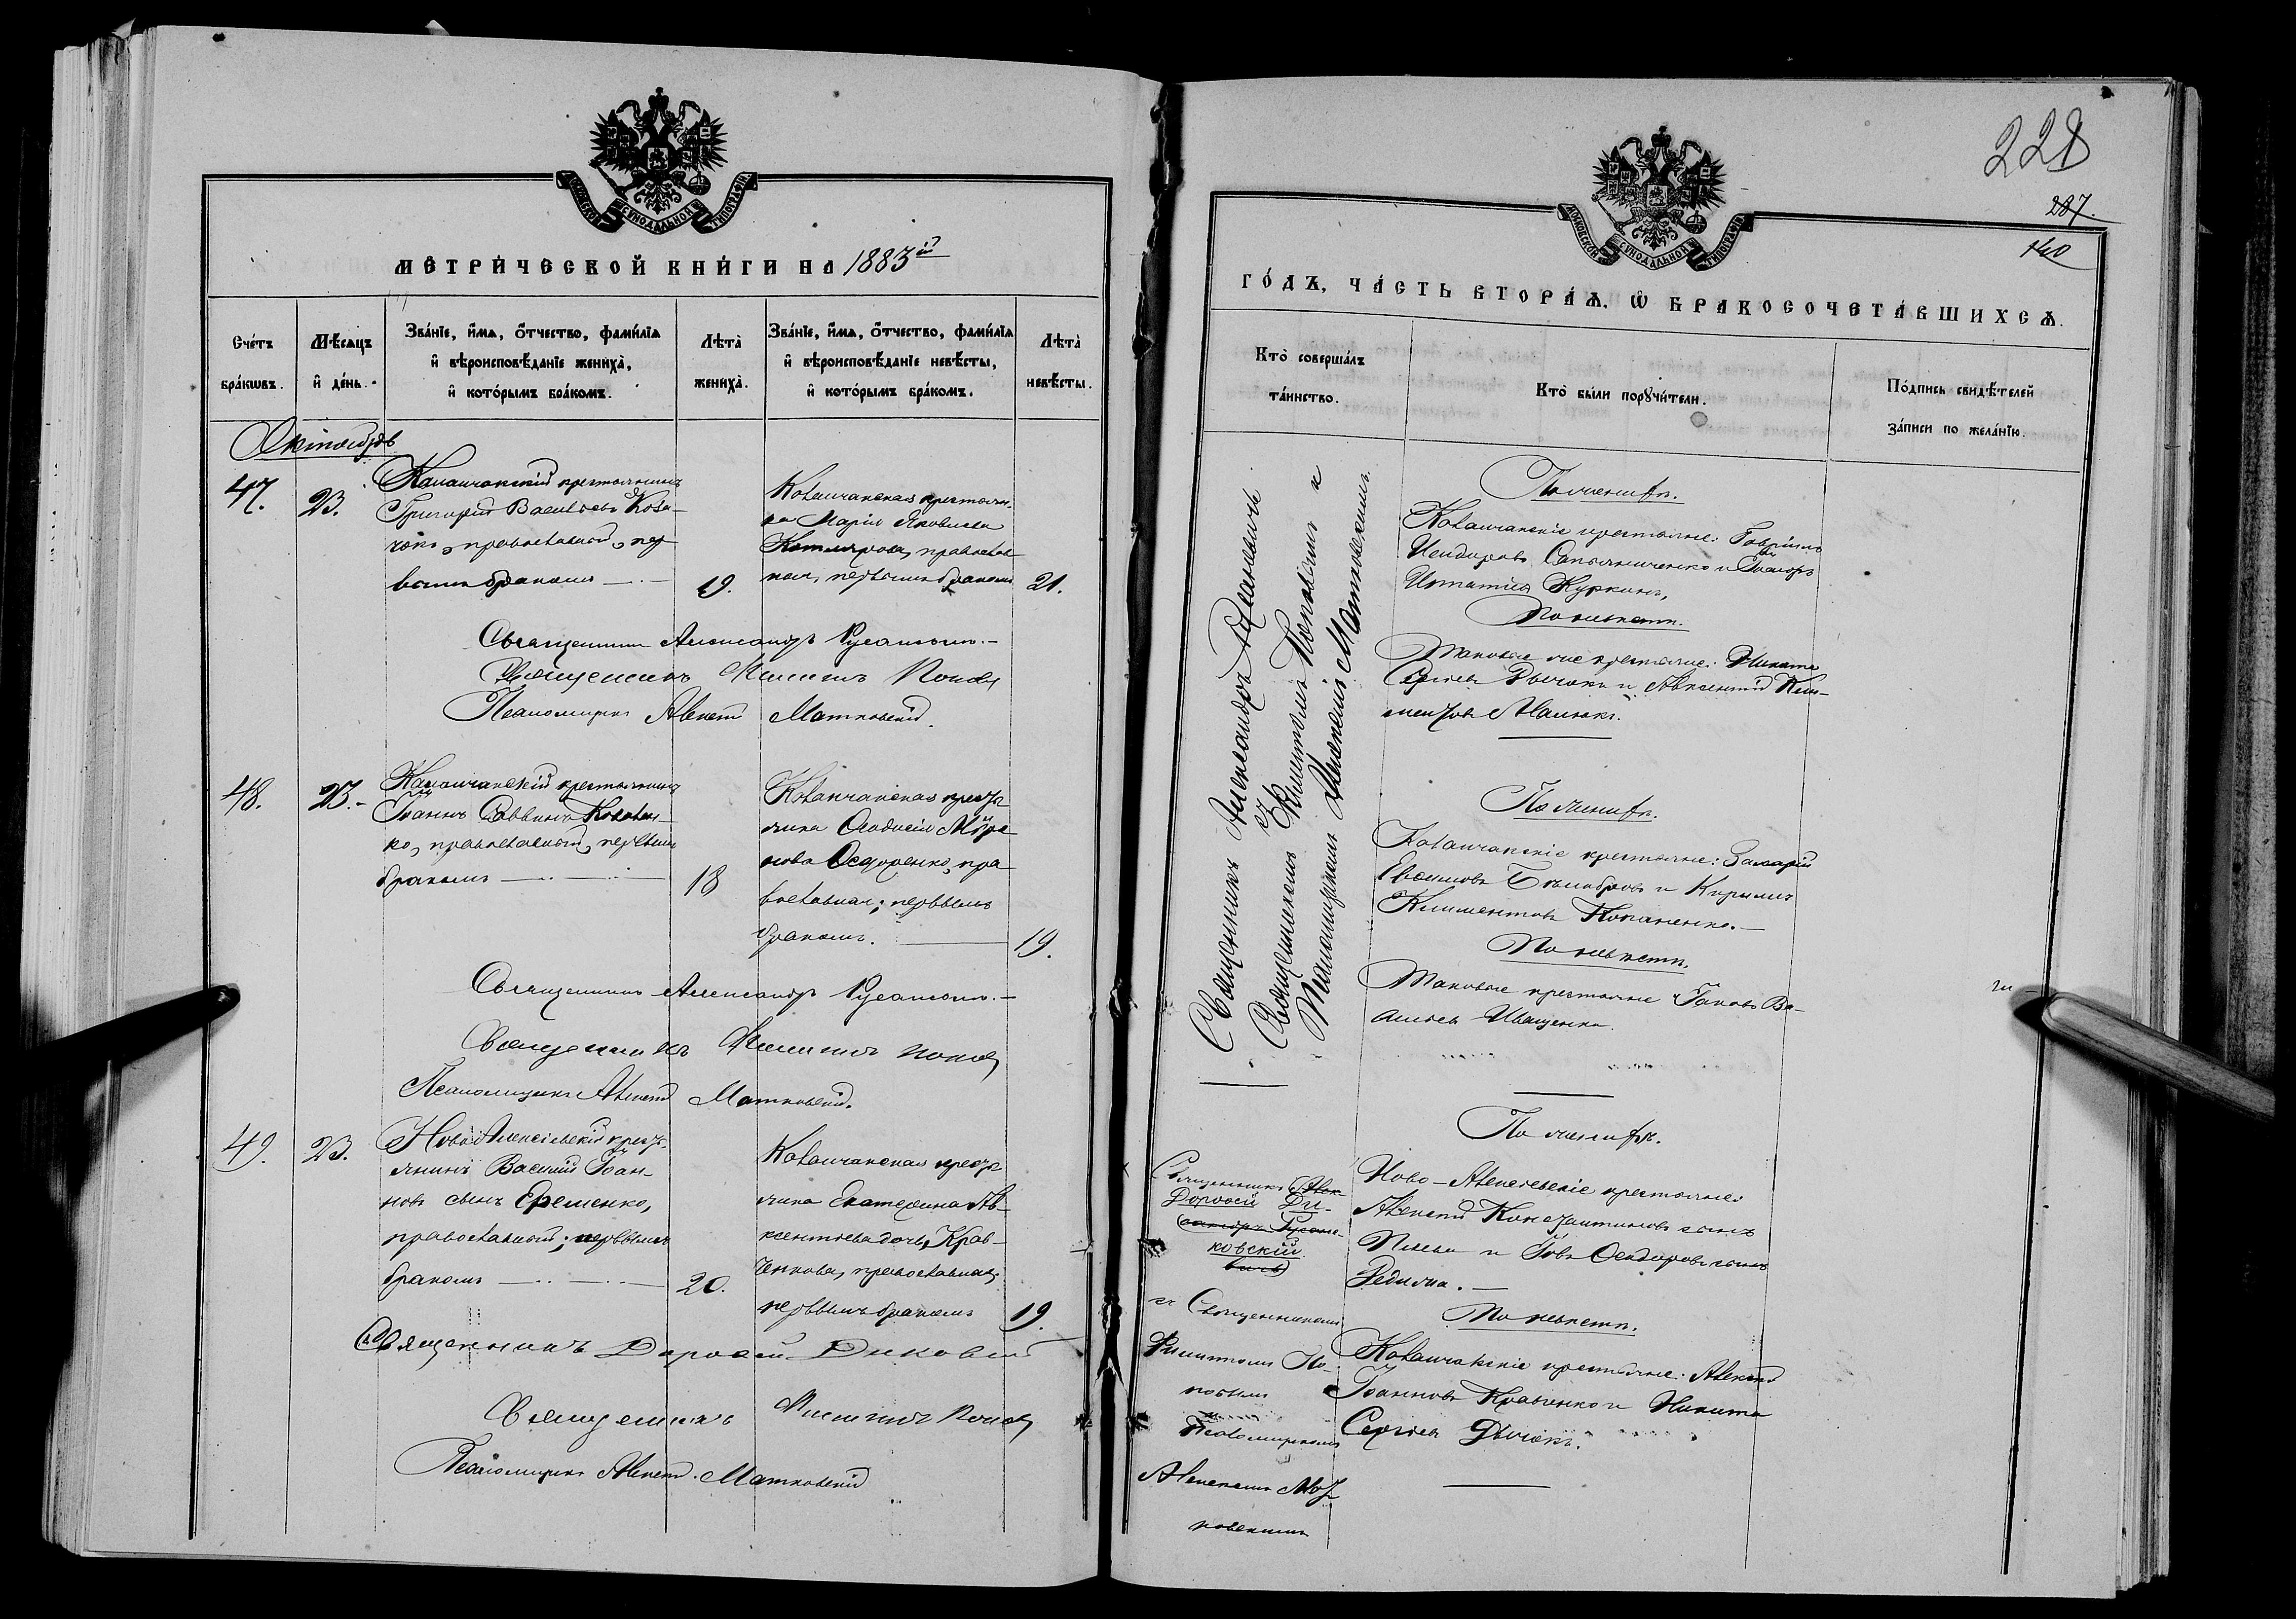 МОСКОВСКОЙ СУНОДАЛЬНОЙ ТИПОГРАФІИ
МЕТРИЧЕСКОЙ КНИГИ НА 1883й
Счетъ браковъ.
Мѣсяцъ и день.
Званіе, имя, отчество, фамилія
и вѣроисповѣданіе жениха,
и которымъ бракомъ.
Лѣта жениха.
Званіе, имя, отчество, фамилія
и вѣроисповѣданіе невѣсты,
и которымъ бракомъ.
Лѣта невѣсты.
Октябрь
47.
23.
Каланчакскій крестьянинъ
Григорій Васильевъ
православный, пер
вымъ бракомъ
19.
Каланчакская крестьян
ка Марія Яковлева
православ
ная, первымъ бракомъ
21.
Священникъ Александръ
Священникъ Филиппъ Поповъ
Псаломщикъ Алексей Матковскій.
48.
23.
Каланчакскій крестьянинъ
Іоаннъ Саввинъ
ко, православный, первымъ
бракомъ
18
Каланчакская крест
янка Феодосія
ова Федоренко, пра
вославная; первымъ
бракомъ.
19.
Священникъ Александръ
Священникъ Филиппъ Поповъ
Псаломщикъ Алексей Матковскій.
49.
23.
Ново Алексѣевскій крест
янинъ Василій Іоан
новъ сынъ Еременко,
православный; первымъ
бракомъ
20.
Каланчакская крест
янка Екатерина Ав
ксентіева дочь, Крав
ченкова, православная,
первымъ бракомъ
19.
Священникъ Дороѳей Диковскій
Священникъ Филиппъ Поповъ
Псаломщикъ Алексей Матковскій
228
287.
140
МОСКОВСКОЙ СУНОДАЛЬНОЙ ТИПОГРАФІИ
ГОДЪ, ЧАСТЬ ВТОРАЯ, Ѡ БРАКОСОЧЕТАВШИХСЯ.
Кто совершалъ таинство.
Кто были поручители.
Подпись свидѣтелей
записи по желанію.
Священникъ Александръ
съ
Священникомъ Филиппомъ Поповымъ и
Псаломщикомъ Алексѣемъ Матковскимъ.
По женихѣ.
Каланчакскіе крестьяне: Гавріилъ
Исидоровъ и
Игнатіевъ Куркинъ,
По невѣстѣ.
Таковые же крестьяне: Никита
Сергіевъ Дычокъ и Авксентій Кли
ментовъ
По женихѣ.
Каланчакскіе крестьяне: Захарій
и Кириллъ
Климентовъ
По невѣстѣ.
Таковые крестьяне Іаковъ Ва
силіевъ Иващенко.
По женихѣ.
Священникъ
Дороѳей Ди
ковскій
съ Священникомъ
Филиппомъ По
повымъ и
Псаломщикомъ
Алексеемъ Мат
ковскимъ
Ново-Алексѣевскіе крестьяне:
Алексей Константиновъ сынъ
и Іовъ Феодоровъ сынъ
По невѣстѣ.
Каланчакскіе крестьяне: Алексей
Іоанновъ Кравченко и Никита
Сергіевъ Дычокъ.